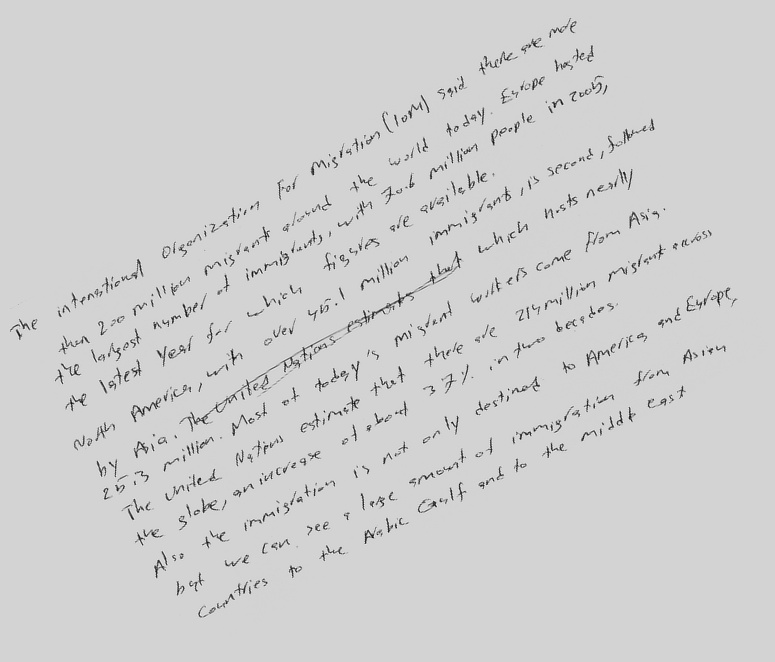 The international Organization For Migration (IOM) said there are more
than 200 million migrants around the world today. Europe hosted
the largest number of immigrants, with 70.6 million people in 2005,
the latest Year for which figures are available.
North America, with over 45.1 million immigrants, is second, followed
by Asia. The United Nations estimates that which hosts nearly
25.3 million. Most of today's migrant workers come from Asia.
The United Nations estimate that there are 214 million migrant across
the globe, an increase of about 37% in two decades.
Also the immigration is not only destined to America and Europe,
but we can see a large amount of immigration from Asian
countries to the Arabic Gaulf and to the middle east